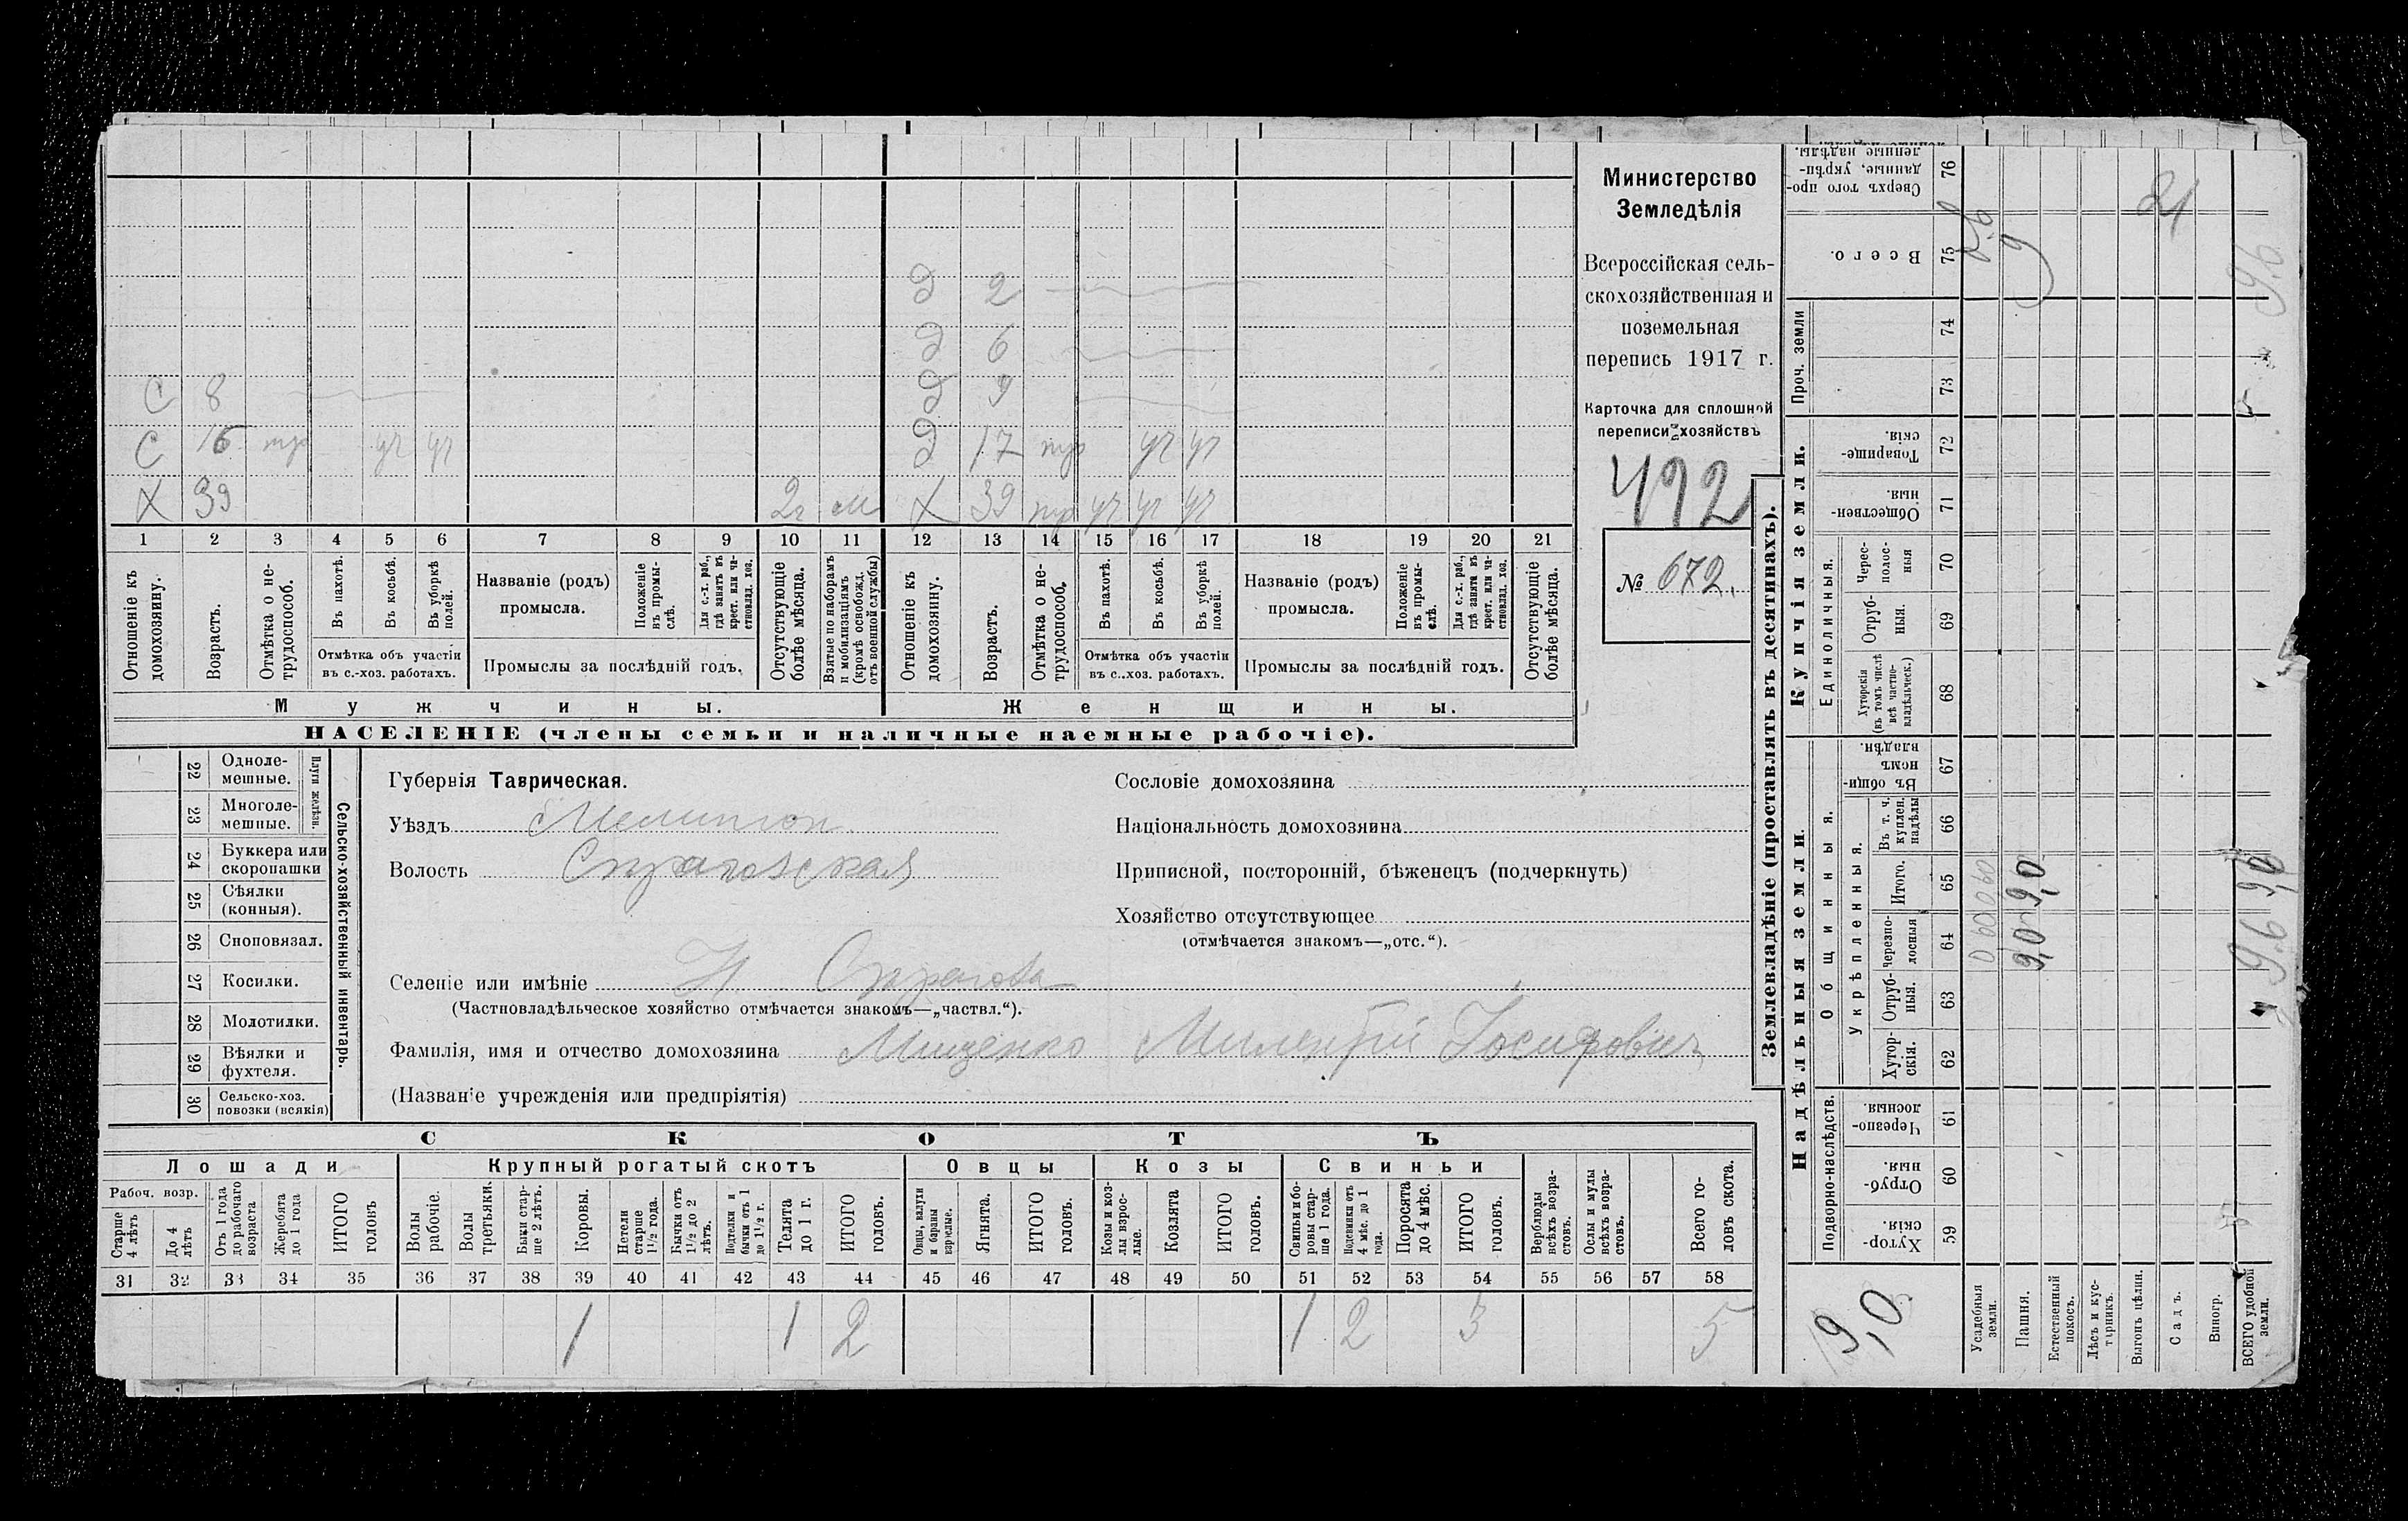 Министерство
Земледѣлія
Всероссійская сель-
скохозяйственная и
поземельная
перепись 1917 г.
Карточка для сплошной
переписи хозяйствъ
492
№ 672.
Д 2
Д 6
С 8 Д 9
С 16 тр уч уч Д 17 тр уч уч
Х 39 2г м Х 39 тр уч уч уч
1 2 3 4 5 6 7 8 9 10 11 12 13 14 15 16 17 18 19 20 21
Отношеніе къ домохозяину.
Возрастъ.
Отмѣтка о не-трудоспособ.
Въ пахотѣ.
Въ косьбѣ.
Въ уборкѣ полей.
Отмѣтка объ участіи
въ с.-хоз. работахъ.
Названіе (родъ)
промысла.
Положеніе въ промы-слѣ.
Для с.-х. раб., гдѣ занятъ въ крест. или ча-стновлад. хоз.
Промыслы за послѣдній годъ.
Отсутствующіе болѣе мѣсяца.
Взятые по наборамъ и мобилизаціямъ (кромѣ освобожд. отъ военной службы)
Отношеніе къ домохозяину.
Возрастъ.
Отмѣтка о не-трудоспособ.
Въ пахотѣ.
Въ косьбѣ.
Въ уборкѣ полей.
Отмѣтка объ участіи
въ с..хоз. работахъ.
Названіе (родъ)
промысла.
Положеніе въ промы-слѣ.
Для с.-х. раб., гдѣ занята въ крест. или ча-стновлад. хоз.
Промыслы за послѣдній годъ.
Отсутствующіе болѣе мѣсяца.
Мужчины. Женщины.
НАСЕЛЕНІЕ (члены семьи и наличные наемные рабочіе).
22 Одноле-мешные.
23 Многоле-мешные.
Плуги желѣзн.
24 Буккера или скоропашки
25 Сѣялки (конныя).
26 Сноповязал.
27 Косилки.
28 Молотилки.
29 Вѣялки и фухтеля.
30 Сельско-хоз. повозки (всякія)
Сельско-хозяйственный инвентарь.
Губернія Таврическая.
Уѣздъ Мелитоп
Волость
Селеніе или имѣніе Н
(Частновладѣльческое хозяйство отмѣчается знакомъ—„частвл.“).
Фамилія, имя и отчество домохозяина Мищенко Милентій Іосифовичъ
(Названіе учрежденія или предпріятія)
Сословіе домохозяина
Національность домохозяина
Приписной, посторонній, бѣженецъ (подчеркнуть)
Хозяйство отсутствующее
(отмѣчается знакомъ—„отс.“).
СКОТЪ
Лошади Крупный рогатый скотъ Овцы Козы Свиньи
Рабоч. возр.
Старше 4 лѣтъ
До 4 лѣтъ
Отъ 1 года до рабочаго возраста
Жеребята до 1 года
ИТОГО головъ
Волы рабочіе.
Волы третьяки.
Быки стар-ше 2 лѣтъ.
Коровы.
Нетели старше 1½ года.
Бычки отъ 1½ до 2 лѣтъ.
Подтелки и бычки отъ 1 до 1½ г.
Телята до 1 г.
ИТОГО головъ.
Овцы, валухи и бараны взрослые.
Ягнята.
ИТОГО головъ.
Козы и коз-лы взрос-лые.
Козлята
ИТОГО головъ.
Свиньи и бо-ровы стар-ше 1 года.
Подсвинки отъ 4 мѣс. до 1 года.
Поросята до 4 мѣс.
ИТОГО головъ.
Верблюды всѣхъ возра-стовъ.
Ослы и мулы всѣхъ возра-стовъ.
Всего го-ловъ скота.
31 32 33 34 35 36 37 38 39 40 41 42 43 44 45 46 47 48 49 50 51 52 53 54 55 56 57 58
1 1 2 1 2 3 5
Землевладѣніе (проставлять въ десятинахъ).
Надѣльныя земли
Купчія земли.
Проч. земли
Подворно-наслѣдств.
Общинныя.
Укрѣпленныя.
Единоличныя.
Хутор-скія. 59
Отруб-ныя. 60
Черезпо-лосныя. 61
Хутор-скія. 62
Отруб-ныя. 63
Черезпо-лосныя 64
Итого. 65
Въ т. ч. куплен. надѣлы 66
Въ общи-номъ владѣн. 67
Хуторскія (въ томъ числѣ всѣ частно-владѣльческ.) 68
Отруб-ныя. 69
Черес-полос-ныя 70
Обществен-ныя. 71
Товарище-скія. 72
73
74
Всего. 75
Сверхъ того про-данные, укрѣп-ленные надѣлы. 76
Усадебныя земли.
Пашня.
Естественный покосъ.
Лѣсъ и кус-тарникъ.
Выгонъ цѣлин.
Садъ.
Виногр.
ВСЕГО удобной земли.
9,0
9,0 9,0
9
21
9,6
9,6